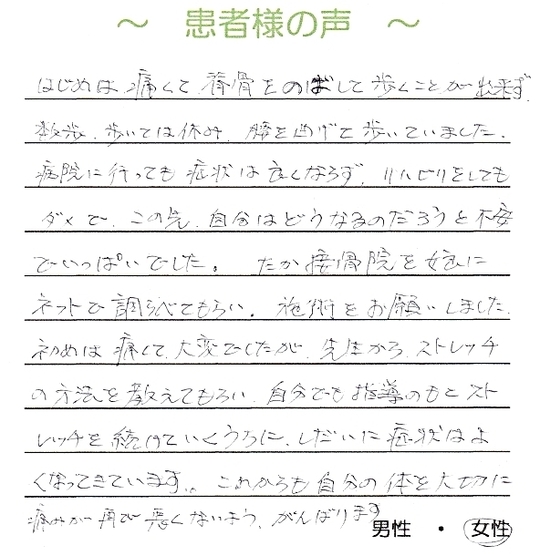 ～ 患者様の声 ～
はじめは痛くて、背骨をのばして歩くことが出来ず、
数歩、歩いては休み、腰を曲げて歩いていました。
病院に行っても症状は良くならず、リハビリをしても
ダメで、この先、自分はどうなるのだろうと不安
でいっぱいでした。 たか接骨院を娘に
ネットで調らべてもらい、施術をお願いしました。
初めは痛くて、大変でしたが、先生から、ストレッチ
の方法を教えてもらい、自分でも指導のもとスト
レッチを続けていくうちに、しだいに症状はよ
くなってきています。 これからも自分の体を大切に
痛みが再び悪くないよう、がんばります
男性 ・ 女性